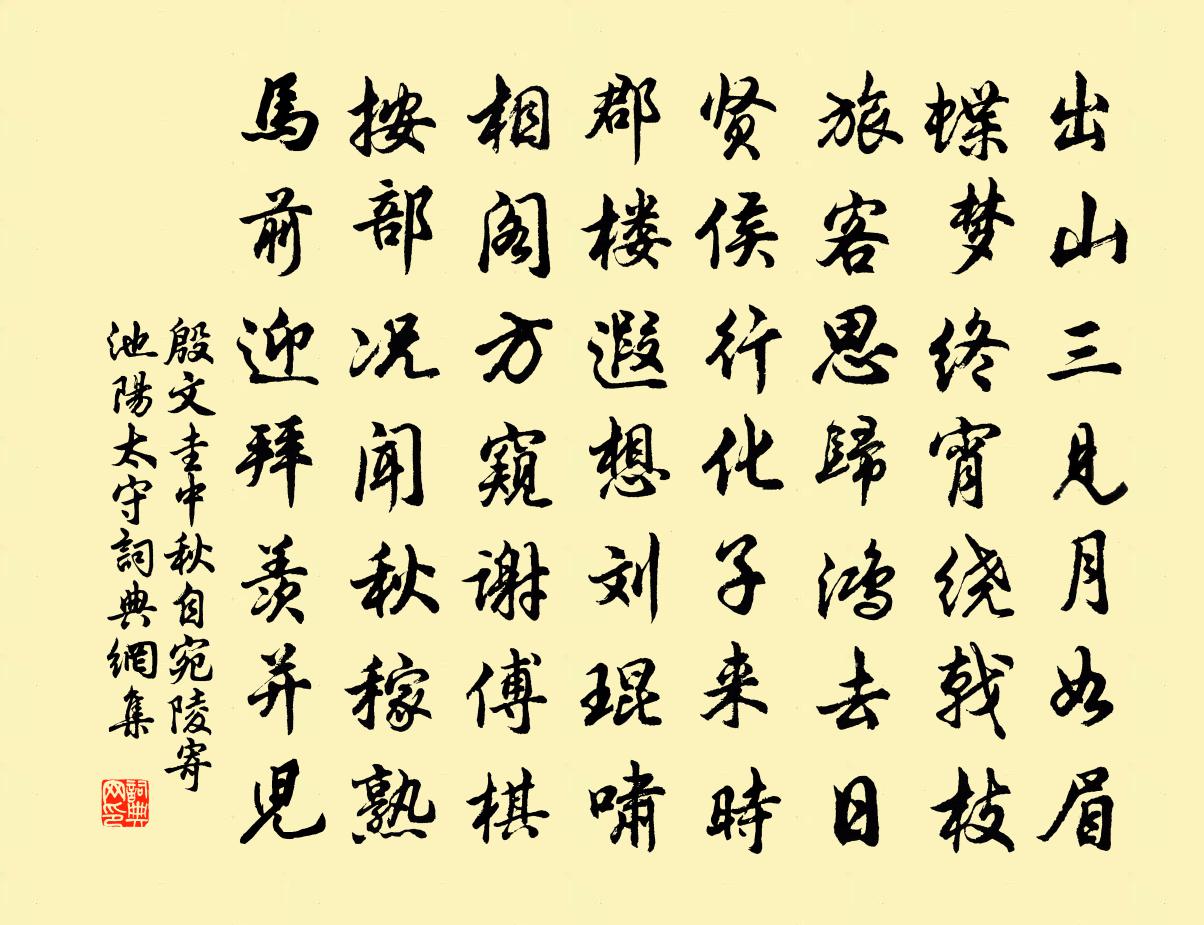 出山三见月如眉
蝶梦终宵绕戟枝
旅客思歸鸿去日
贤侯行化子来時
郡楼遐想刘琨啸
相阁方窥谢傅棋
按部况闻秋稼熟
馬前迎拜羡并兒
殷文圭中秋自宛陵寄
池陽太守詞典網集
詞典网印